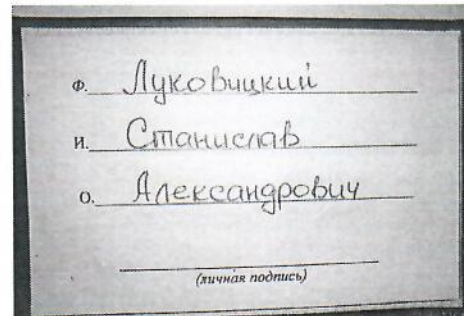 Ф. Луковицкий
И. Станислав
О. Александрович
(личная подпись)